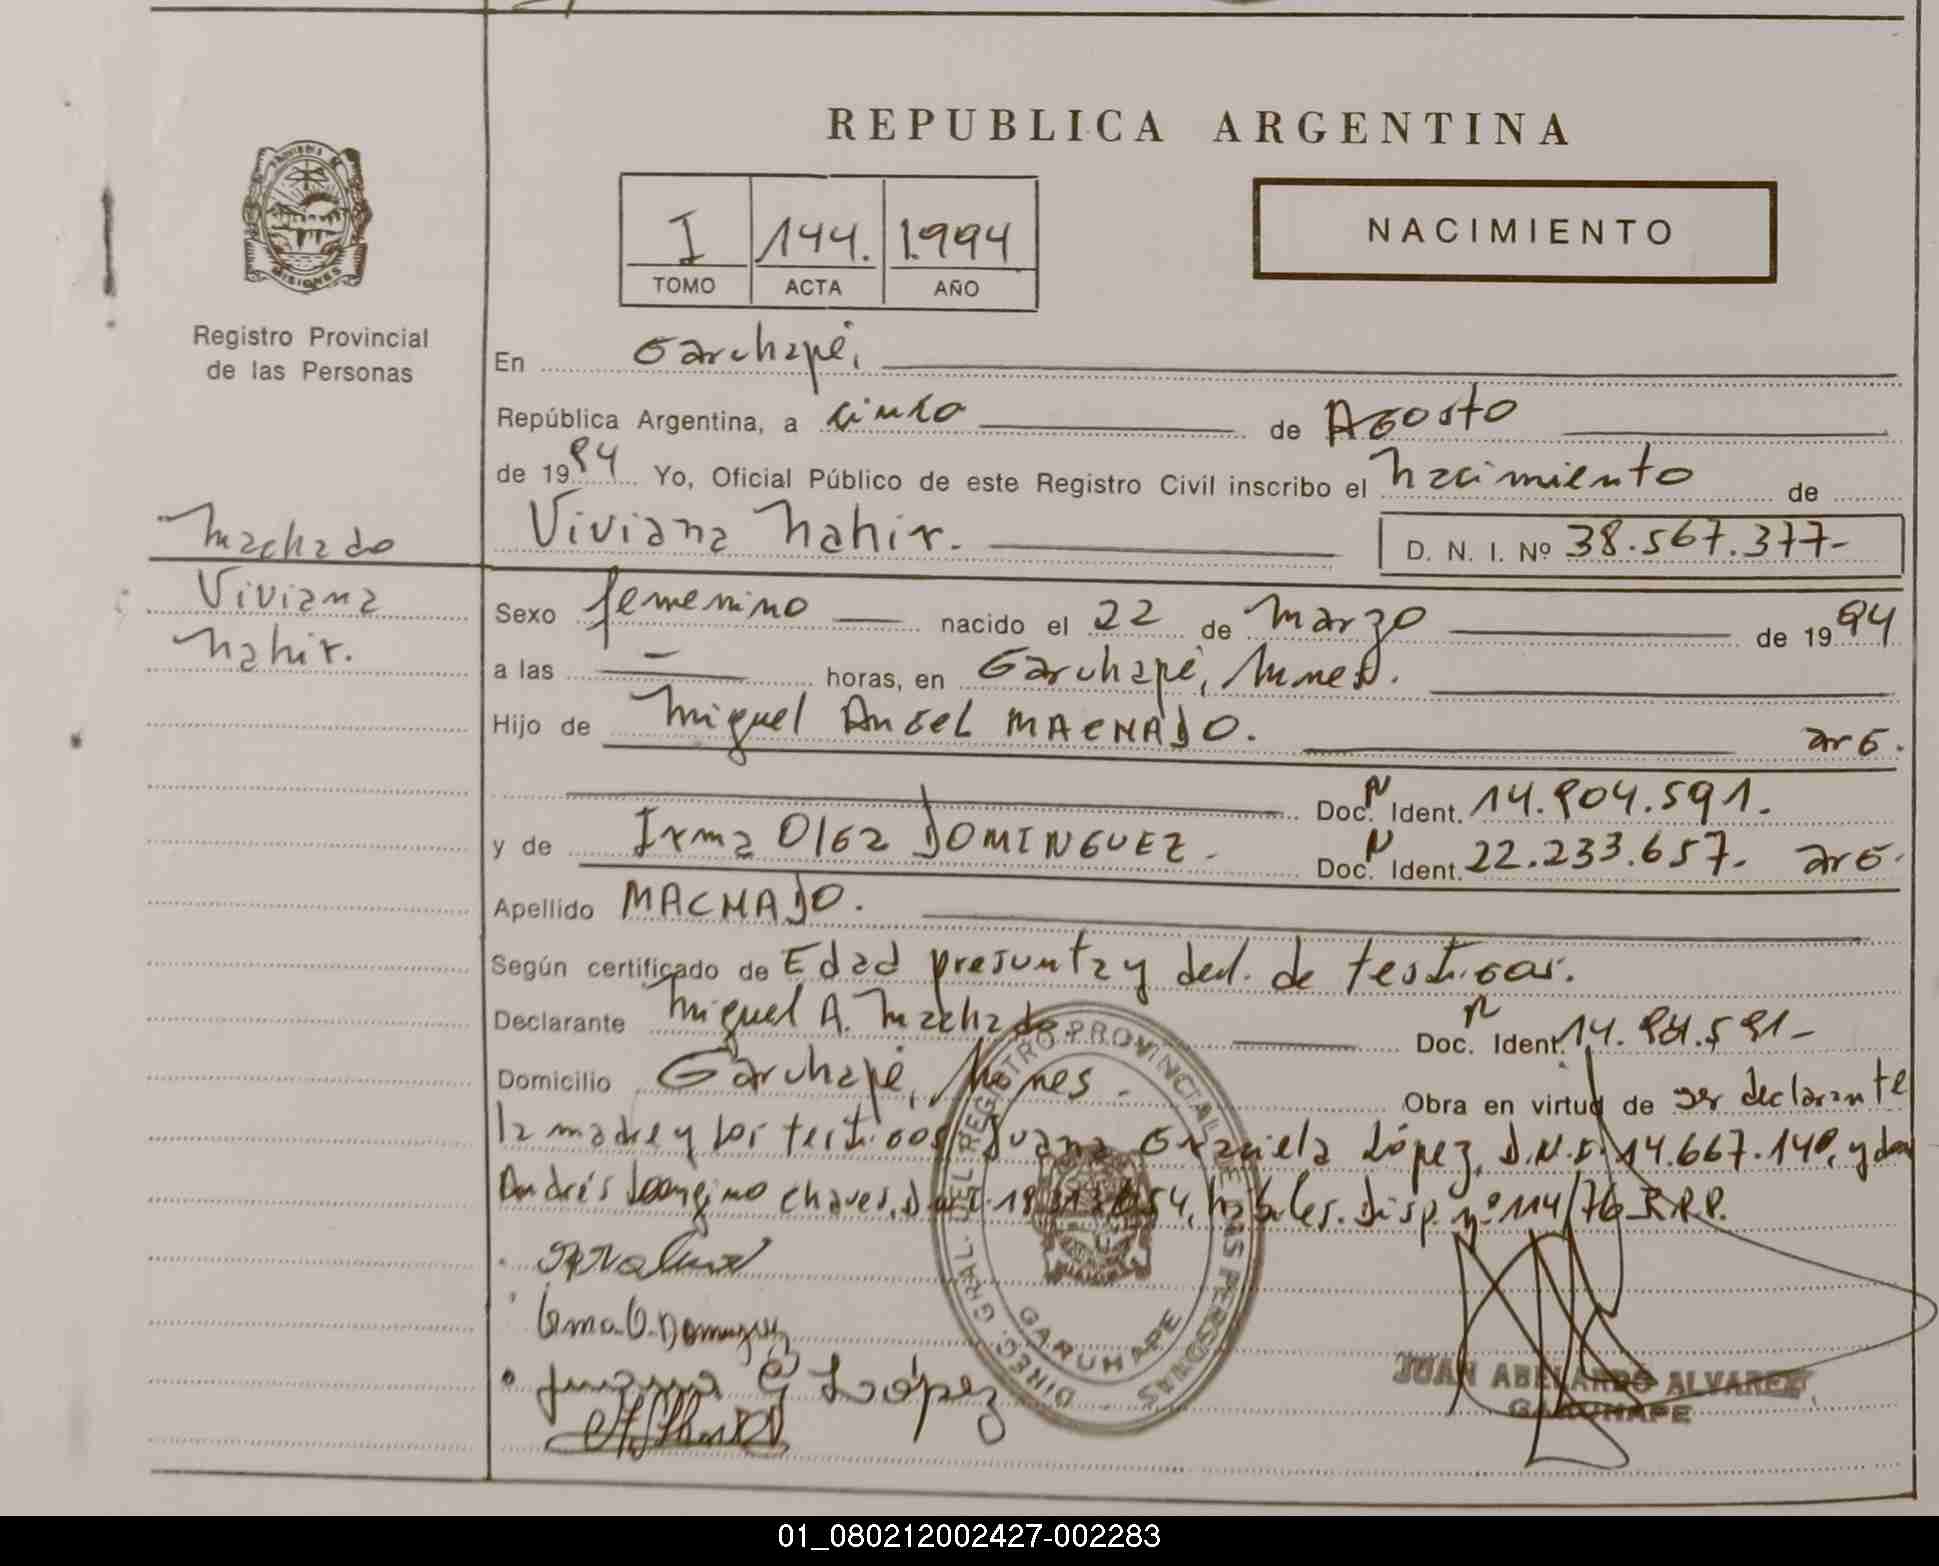 REPUBLICA ARGENTINA
NACIMIENTO
I 144. 1.994
TOMO ACTA AÑO
PROVINCIA DE MISIONES
Registro Provincial
de las Personas
En Garuhapé,
República Argentina, a cinco de Agosto
de 1994 Yo, Oficial Público de este Registro Civil inscribo el Nacimiento de
Viviana Nahir. D. N. I. Nº 38.567.377-
Machado
Viviana
Nahir.
Sexo femenino nacido el 22 de Marzo de 1994
a las — horas, en Garuhapé, Mnes.
Hijo de Miguel Angel MACHADO. arg.
Doc. N Ident. 14.904.591.
y de Irma Olga DOMINGUEZ. Doc. N Ident. 22.233.657. arg.
Apellido MACHADO.
Según certificado de Edad presunta y decl. de testigos.
Declarante Miguel A. Machado Doc. N Ident. 14.904.591-
Domicilio Garuhapé, Mnes. Obra en virtud de ser declarante
la madre y los testigos Juana Graciela López, D.N.I. 14.667.140, y don
Andrés Chaves, D.N.I. hábiles. Disp. nº 114/76 R.P.P.
Irma O. Dominguez
Juana G López
DIREC. GRAL. DEL REGISTRO PROVINCIAL DE LAS PERSONAS
GARUHAPE
JUAN ABELARDO ALVAREZ
GARUHAPE
01_080212002427-002283